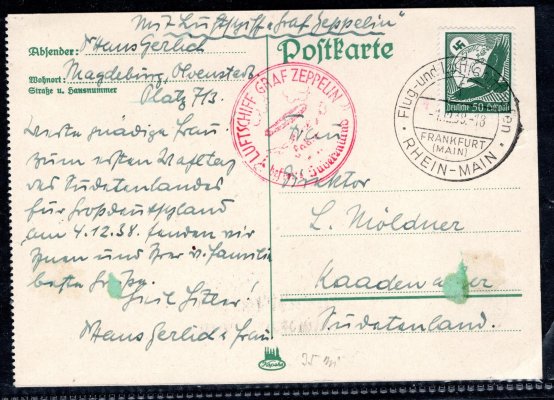 Mit Luftschiff "Graf Zeppelin"
Absender: Hans Gerlich
Wohnort: Magdeburg, Olvenstedt
Straße u. Hausnummer Platz 7/3.
Postkarte
Werte gnädige Frau!
Zum ersten Wahltag
des Sudetenlandes
für Großdeutschland
am 4.12.38. senden wir
Ihnen und Ihrer w. Familie
beste Grüße.
Heil Hitler!
Hans Gerlich u Frau
LUFTSCHIFF GRAF ZEPPELIN
Sudetenland
Deutsche 50 Reichspost
Flug- und Luftschiffhafen
FRANKFURT
(MAIN)
RHEIN-MAIN
Frau
Direktor
L. Möldner
Kaaden a. Eger
Sudetenland.